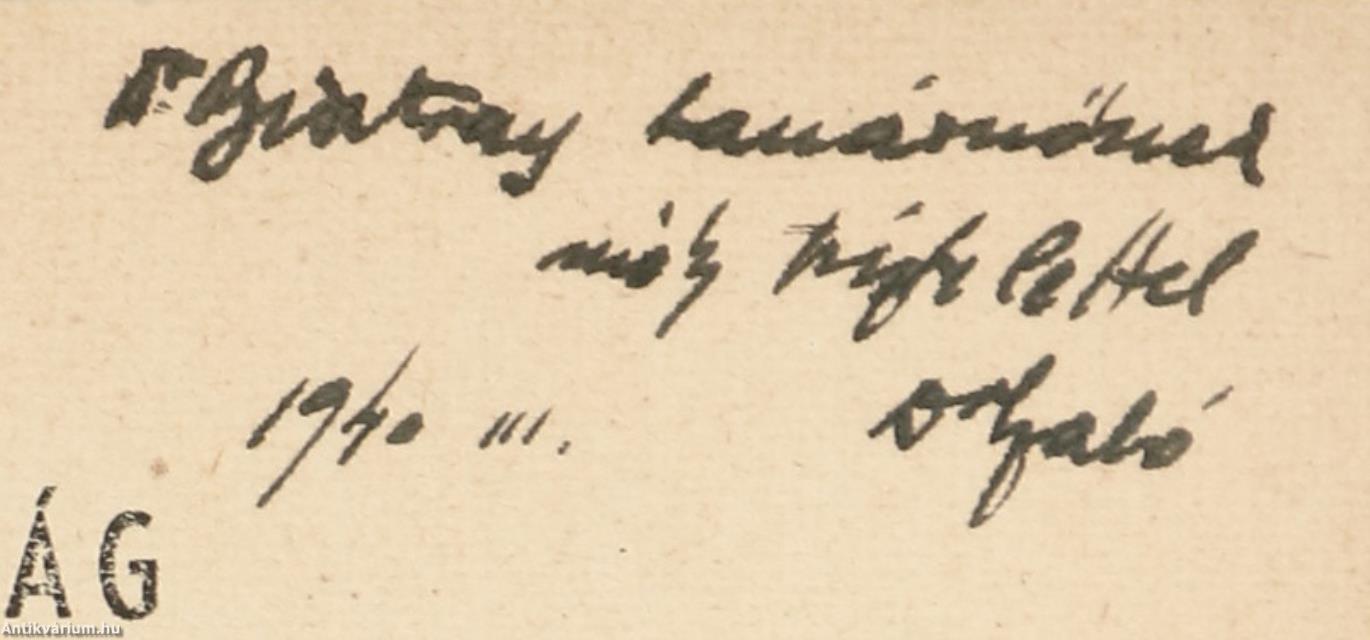 Dr tanárnőnek
mély tisztelettel
1940 III. Dr Szabó
ÁG
Antikvárium.hu